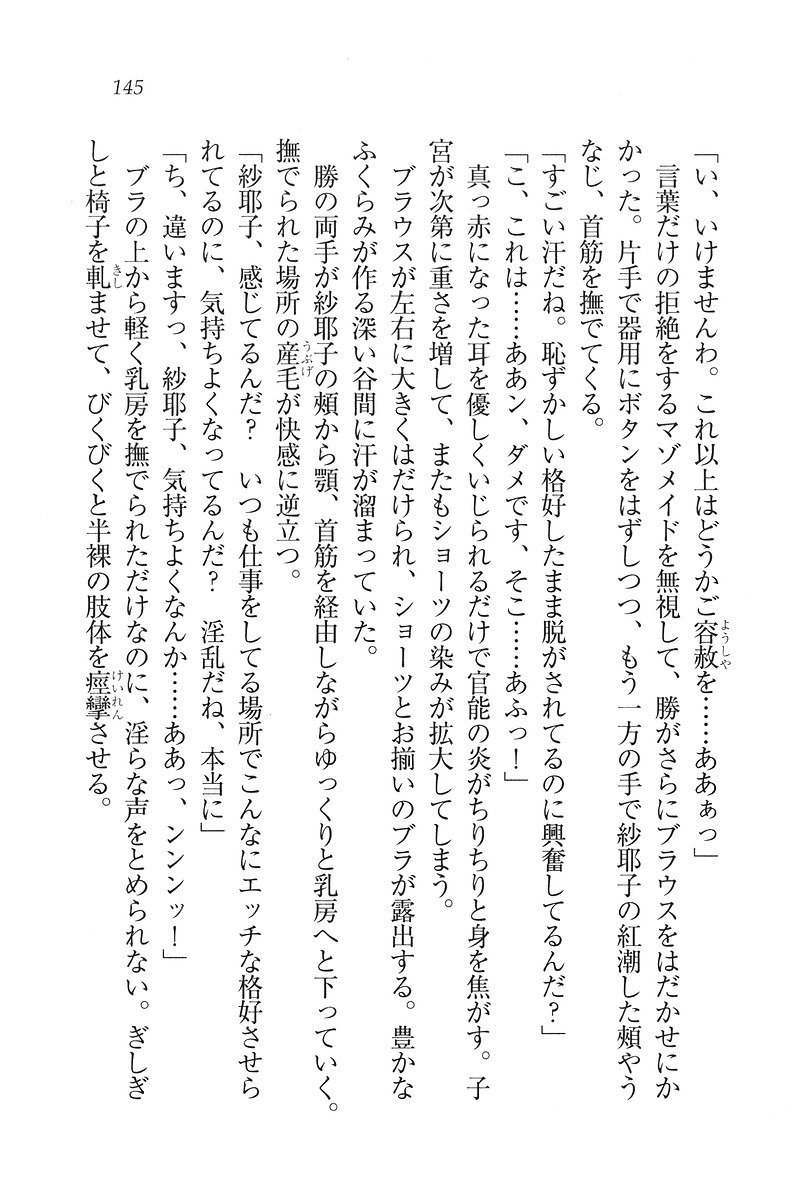 145
「い、いけませんわ。これ以上はどうかご容赦を……ああぁっ」
言葉だけの拒絶をするマゾメイドを無視して、勝がさらにブラウスをはだかせにか
かった。片手で器用にボタンをはずしつつ、もう一方の手で紗耶子の紅潮した頬やう
なじ、首筋を撫でてくる。
「すごい汗だね。恥ずかしい格好したまま脱がされてるのに興奮してるんだ？」
「こ、これは……ああン、ダメです、そこ……あふっ！」
真っ赤になった耳を優しくいじられるだけで官能の炎がちりちりと身を焦がす。子
宮が次第に重さを増して、またもショーツの染みが拡大してしまう。
ブラウスが左右に大きくはだけられ、ショーツとお揃いのブラが露出する。豊かな
ふくらみが作る深い谷間に汗が溜まっていた。
勝の両手が紗耶子の頬から顎、首筋を経由しながらゆっくりと乳房へと下っていく。
撫でられた場所の産毛が快感に逆立つ。
「紗耶子、感じてるんだ？　いつも仕事をしてる場所でこんなにエッチな格好させら
れてるのに、気持ちよくなってるんだ？　淫乱だね、本当に」
「ち、違いますっ、紗耶子、気持ちよくなんか……ああっ、ンンンッ！」
ブラの上から軽く乳房を撫でられただけなのに、淫らな声をとめられない。ぎしぎ
しと椅子を軋ませて、びくびくと半裸の肢体を痙攣させる。
ようしゃ
うぶげ
きし
けいれん